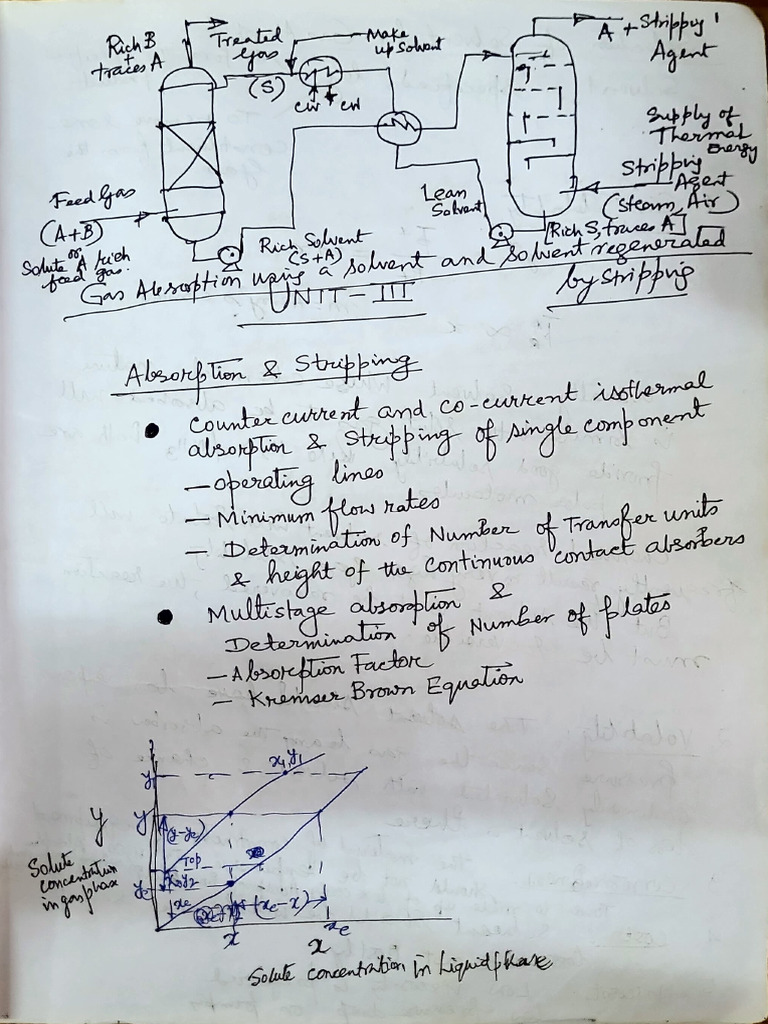 Rich B
+
traces A
Treated
Gas
(S)
Make
up Solvent
CW CW
A + Stripping
Agent
Supply of
Thermal
Energy
Stripping
Agent
(Steam, Air)
Feed Gas
(A+B)
Solute or A rich
feed gas.
Lean
Solvent
Rich Solvent
(S+A)
[Rich S, traces A]
Gas Absorption using a solvent and solvent regenerated
by stripping
UNIT-III
Absorption & Stripping
• Counter current and co-current isothermal
absorption & stripping of single component
- operating lines
- Minimum flow rates
- Determination of Number of Transfer units
& height of the continuous contact absorbers
• Multistage absorption &
Determination of Number of plates
- Absorption Factor
- Kremser Brown Equation
x1, y1
y1
y
y
(y-ye)
Top
x2, y2
ye
xe
(xe-x)
x
x
xe
Solute
concentration
in gas phase
Solute concentration in Liquid phase